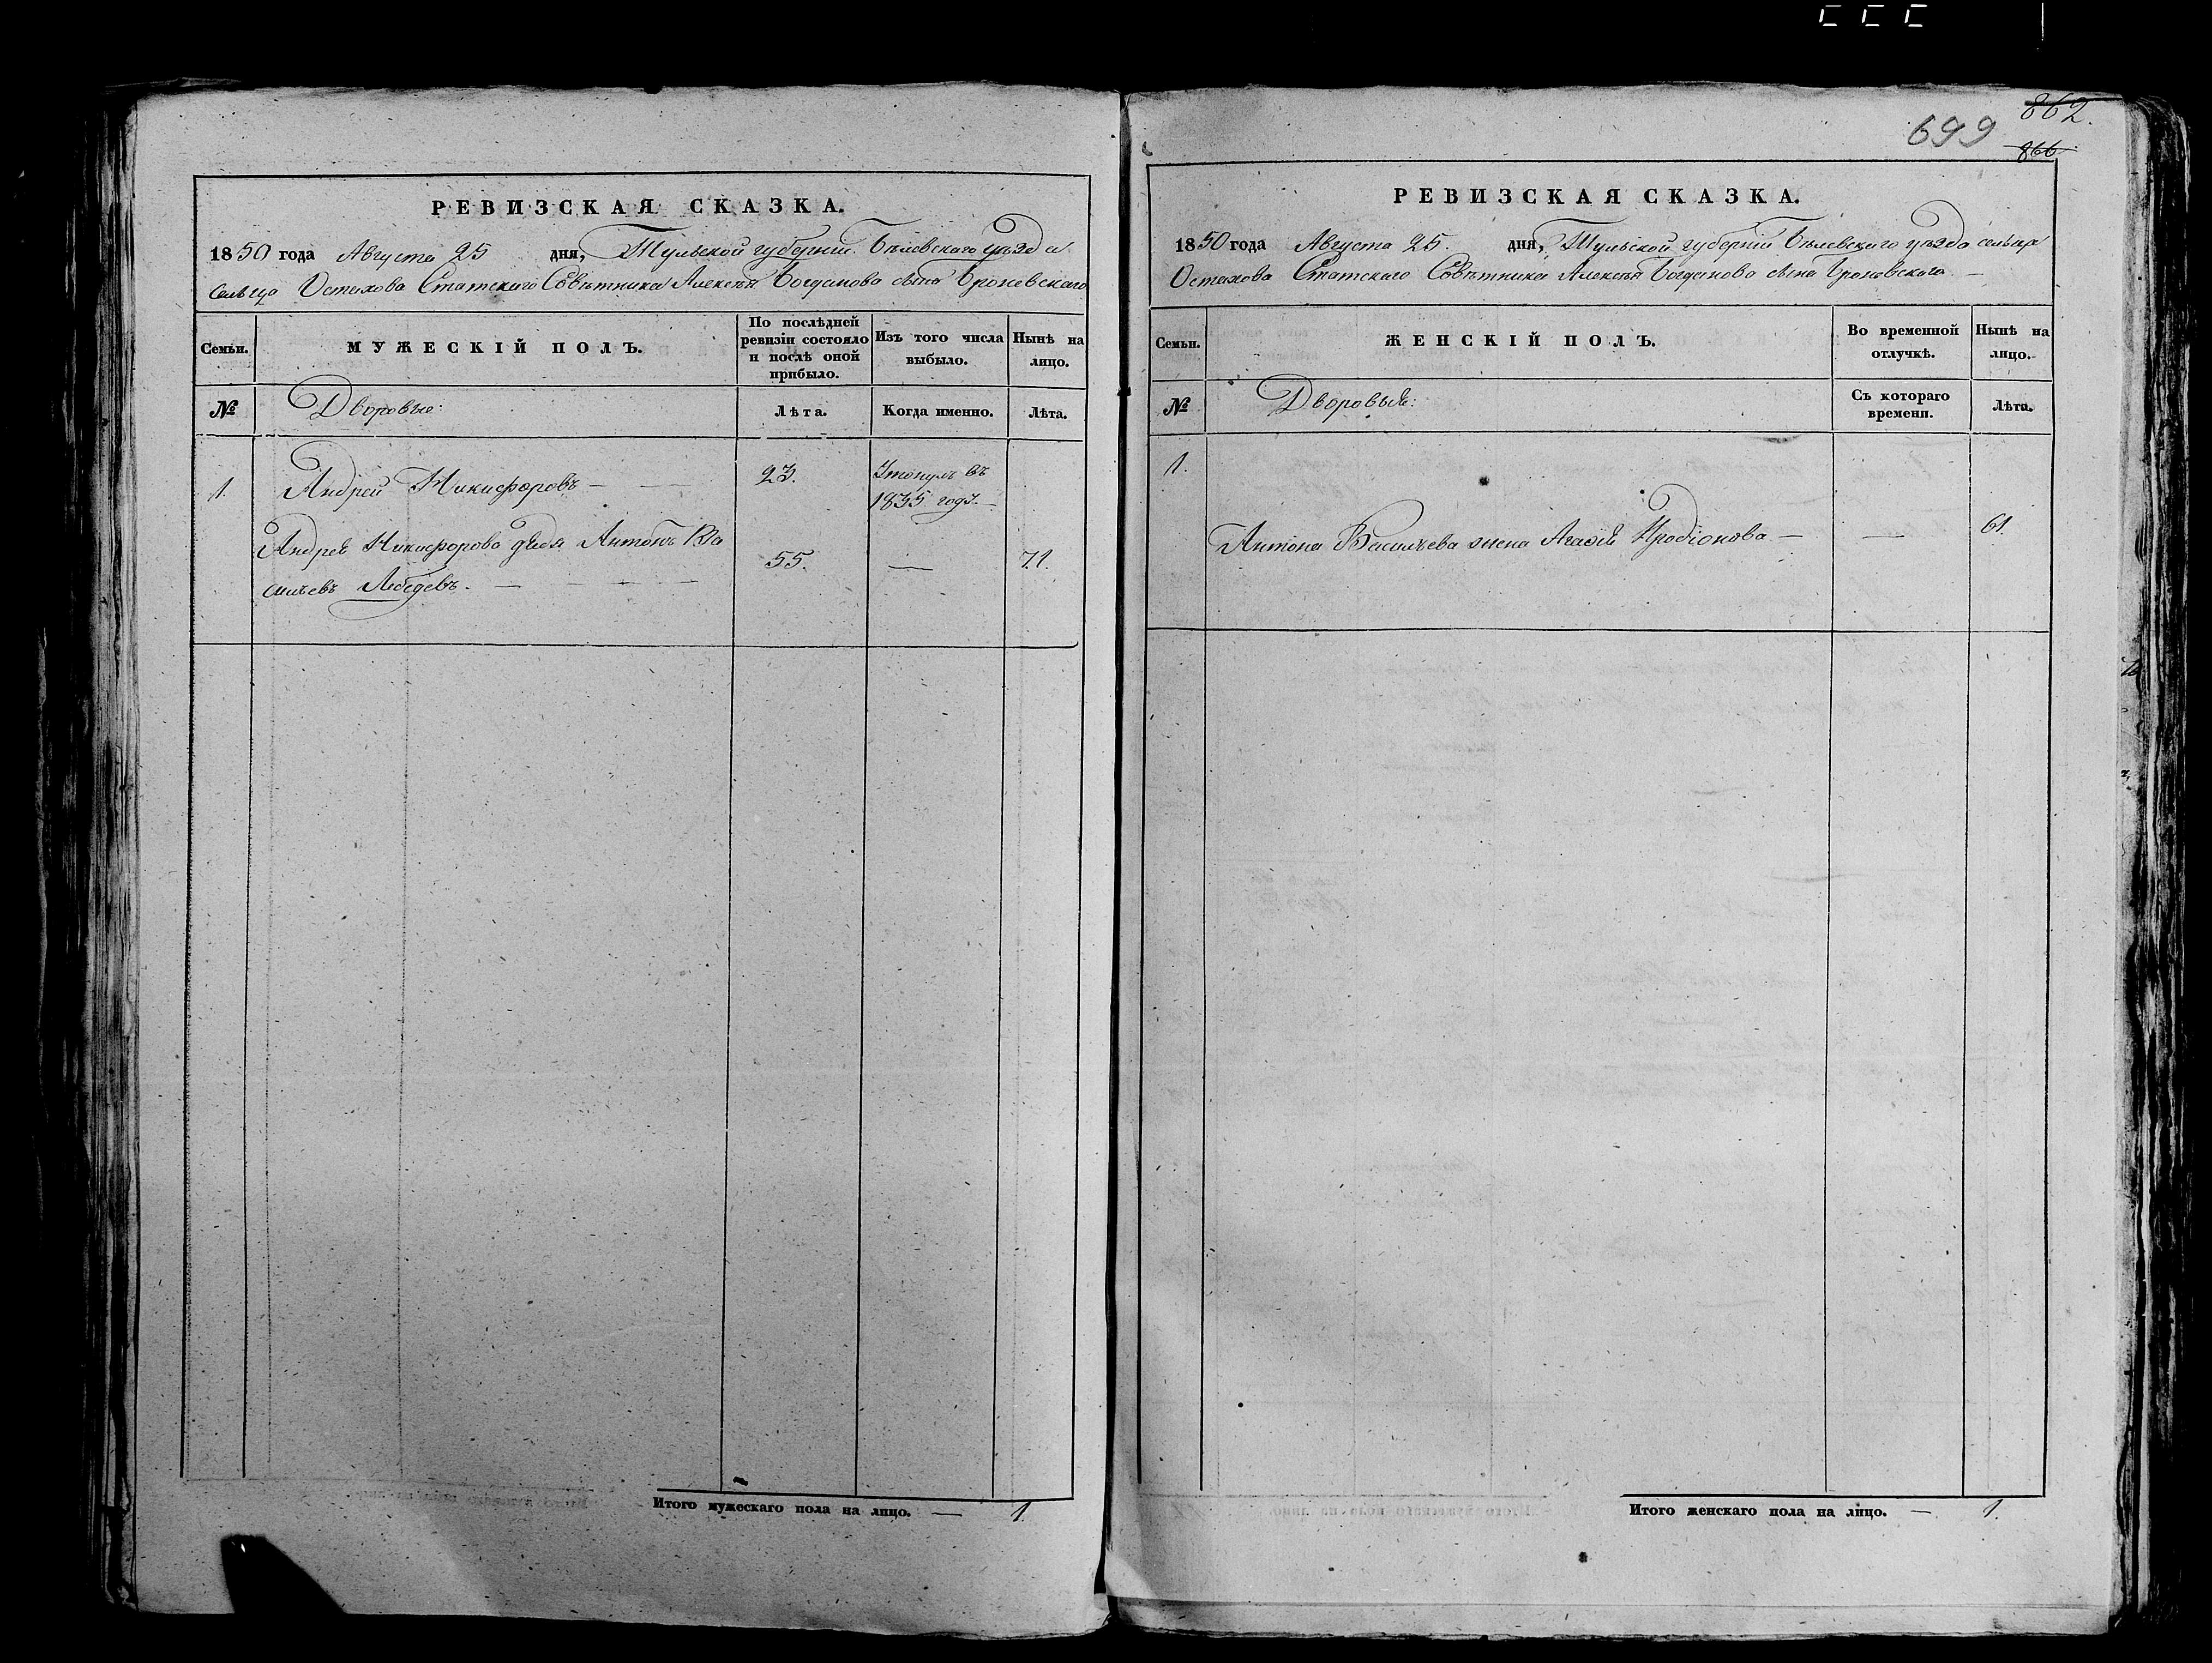 РЕВИЗСКАЯ СКАЗКА.
1850 года Августа 25 дня, Тульской губерніи Бѣлевскаго уѣзда
сельца Остахова Статскаго Совѣтника Алексѣя Богданова сына Броневскаго
Семьи.
МУЖЕСКІЙ ПОЛЪ.
По послѣдней ревизіи состояло и послѣ оной прибыло.
Изъ того числа выбыло.
Нынѣ на лицо.
№
Дворовые:
Лѣта.
Когда именно.
Лѣта.
1. Андрей Никифоровъ — 23. Утонулъ въ
1835 году. —
Андрея Никифорова дядя Антонъ Ва
сильевъ Лебедевъ. — 55. — 71.
Итого мужескаго пола на лицо. — 1.
862.
699
866
РЕВИЗСКАЯ СКАЗКА.
1850 года Августа 25. дня, Тульской губерніи Бѣлевскаго уѣзда сельца
Остахова Статскаго Совѣтника Алексѣя Богданова сына Броневскаго. —
Семьи.
ЖЕНСКІЙ ПОЛЪ.
Во временной отлучкѣ.
Нынѣ на лицо.
№
Дворовыя:
Съ котораго времени.
Лѣта.
1.
Антона Васильева жена Агафія Иродіонова — — 61.
Итого женскаго пола на лицо. — 1.